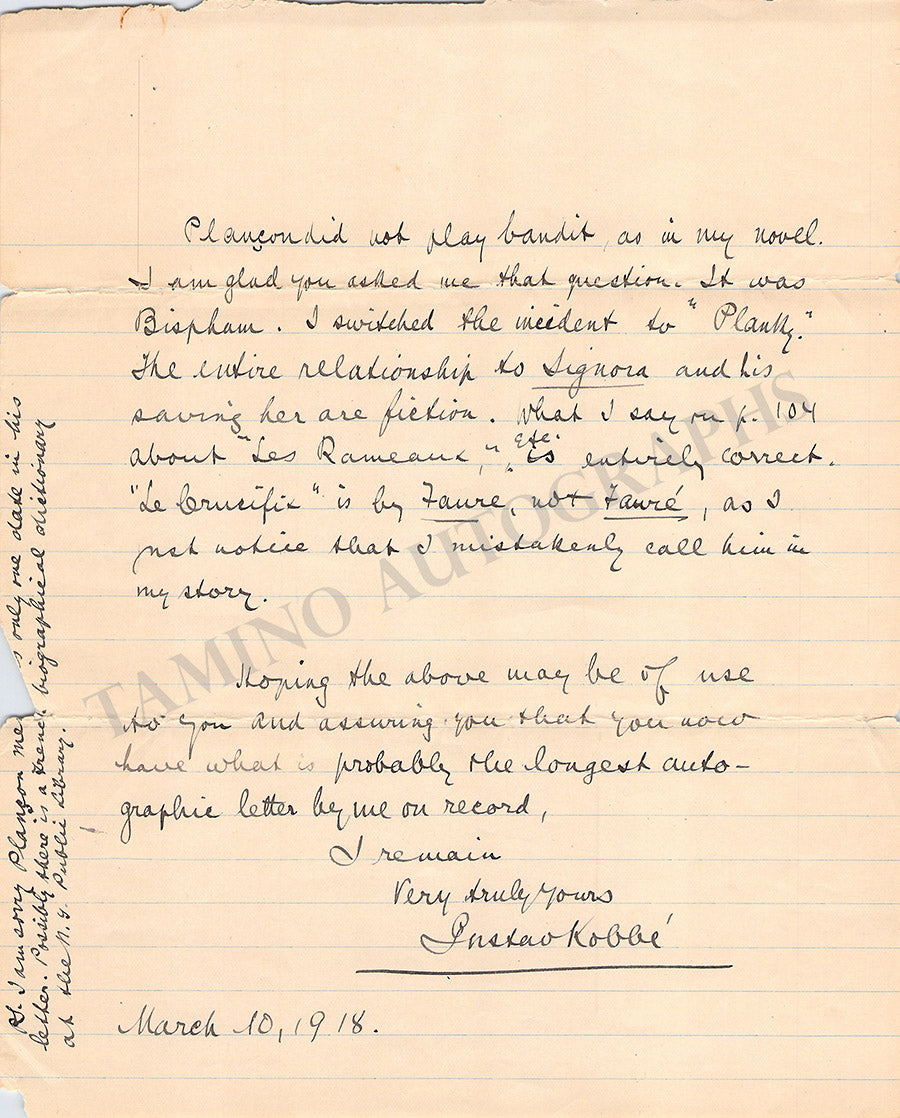 Plançon did not play bandit, as in my novel.
I am glad you asked me that question. It was
Bispham. I switched the incident to "Planky."
The entire relationship to Signora and his
saving her are fiction. What I say on p. 104
about "Les Rameaux," etc. is entirely correct.
"Le Crucifix" is by Faure, not Fauré, as I
not notice that I mistakenly call him in
my story.
Hoping the above may be of use
to you and assuring you that you now
have what is probably the longest auto-
graphic letter by me on record,
I remain
Very truly yours
Gustav Kobbé
March 10, 1918.
P.S. I am sorry Plançon me is only one date in his
letter. Possibly there is a French biographical dictionary
at the N.Y. Public Library.
TAMINO AUTOGRAPHS